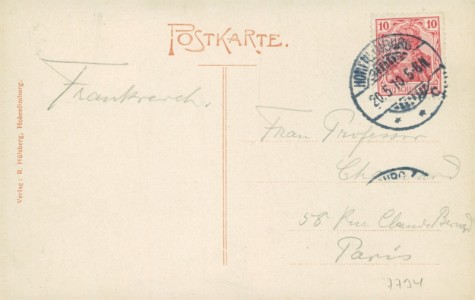 POSTKARTE.
10 10
HOHENLIMBURG
20.5.10.5-6N.
Frankreich.
Frau Professor
58 Rue Claude Bernard
Paris
7794
Verlag: R. Hülsberg, Hohenlimburg.